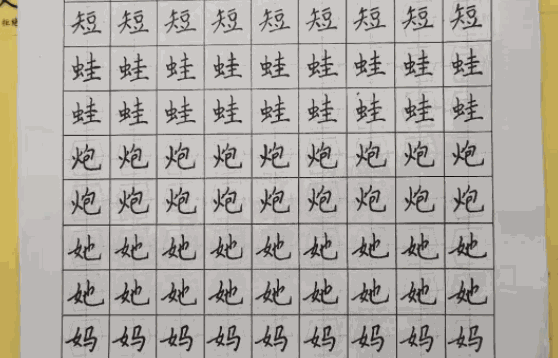 短短短短短短短短短
蛙蛙蛙蛙蛙蛙蛙蛙蛙
蛙蛙蛙蛙蛙蛙蛙蛙蛙
炮炮炮炮炮炮炮炮炮
炮炮炮炮炮炮炮炮炮
她她她她她她她她她
她她她她她她她她她
妈妈妈妈妈妈妈妈妈